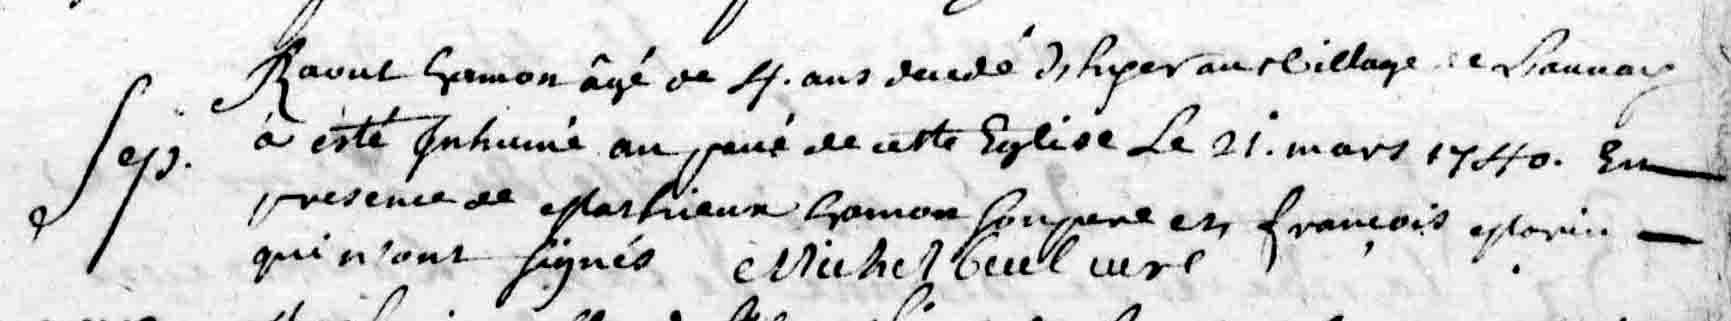 Raoul hamon âgé de 4. ans decedé d'hyer au village de Launay
Sep. à èsté Inhumé au pavé de cette Eglise Le 21. mars 1740. En
presence de Mathieux hamon son pere et françois Morin
qui n'ont signés Michel curé